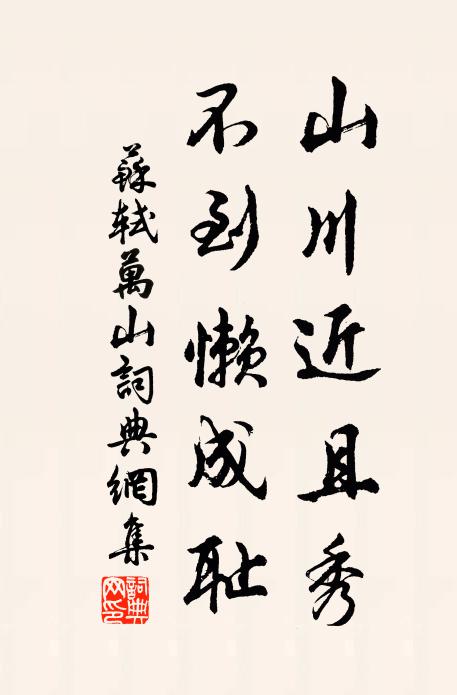 山川近且秀
不到懶成耻
蘇軾萬山詞典網集
詞典網印